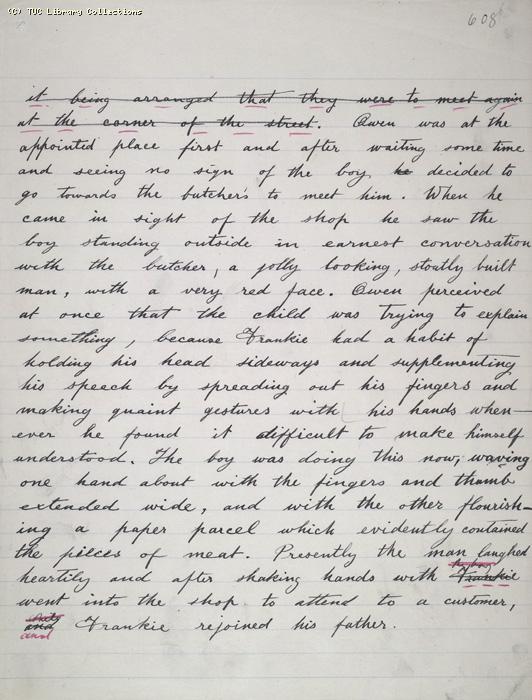 (C) TUC Library Collections
608
it being arranged that they were to meet again
at the corner of the street. Owen was at the
appointed place first and after waiting some time
and seeing no sign of the boy he decided to
go towards the butcher's to meet him. When he
came in sight of the shop he saw the
boy standing outside in earnest conversation
with the butcher, a jolly looking, stoutly built
man, with a very red face. Owen perceived
at once that the child was trying to explain
something, because Frankie had a habit of
holding his head sideways and supplementing
his speech by spreading out his fingers and
making quaint gestures with his hands when-
ever he found it difficult to make himself
understood. The boy was doing this now, waving
one hand about with the fingers and thumb
extended wide, and with the other flourish-
ing a paper parcel which evidently contained
the pieces of meat. Presently the man laughed
heartily and after shaking hands with Frankie
went into the shop to attend to a customer,
and Frankie rejoined his father.
and